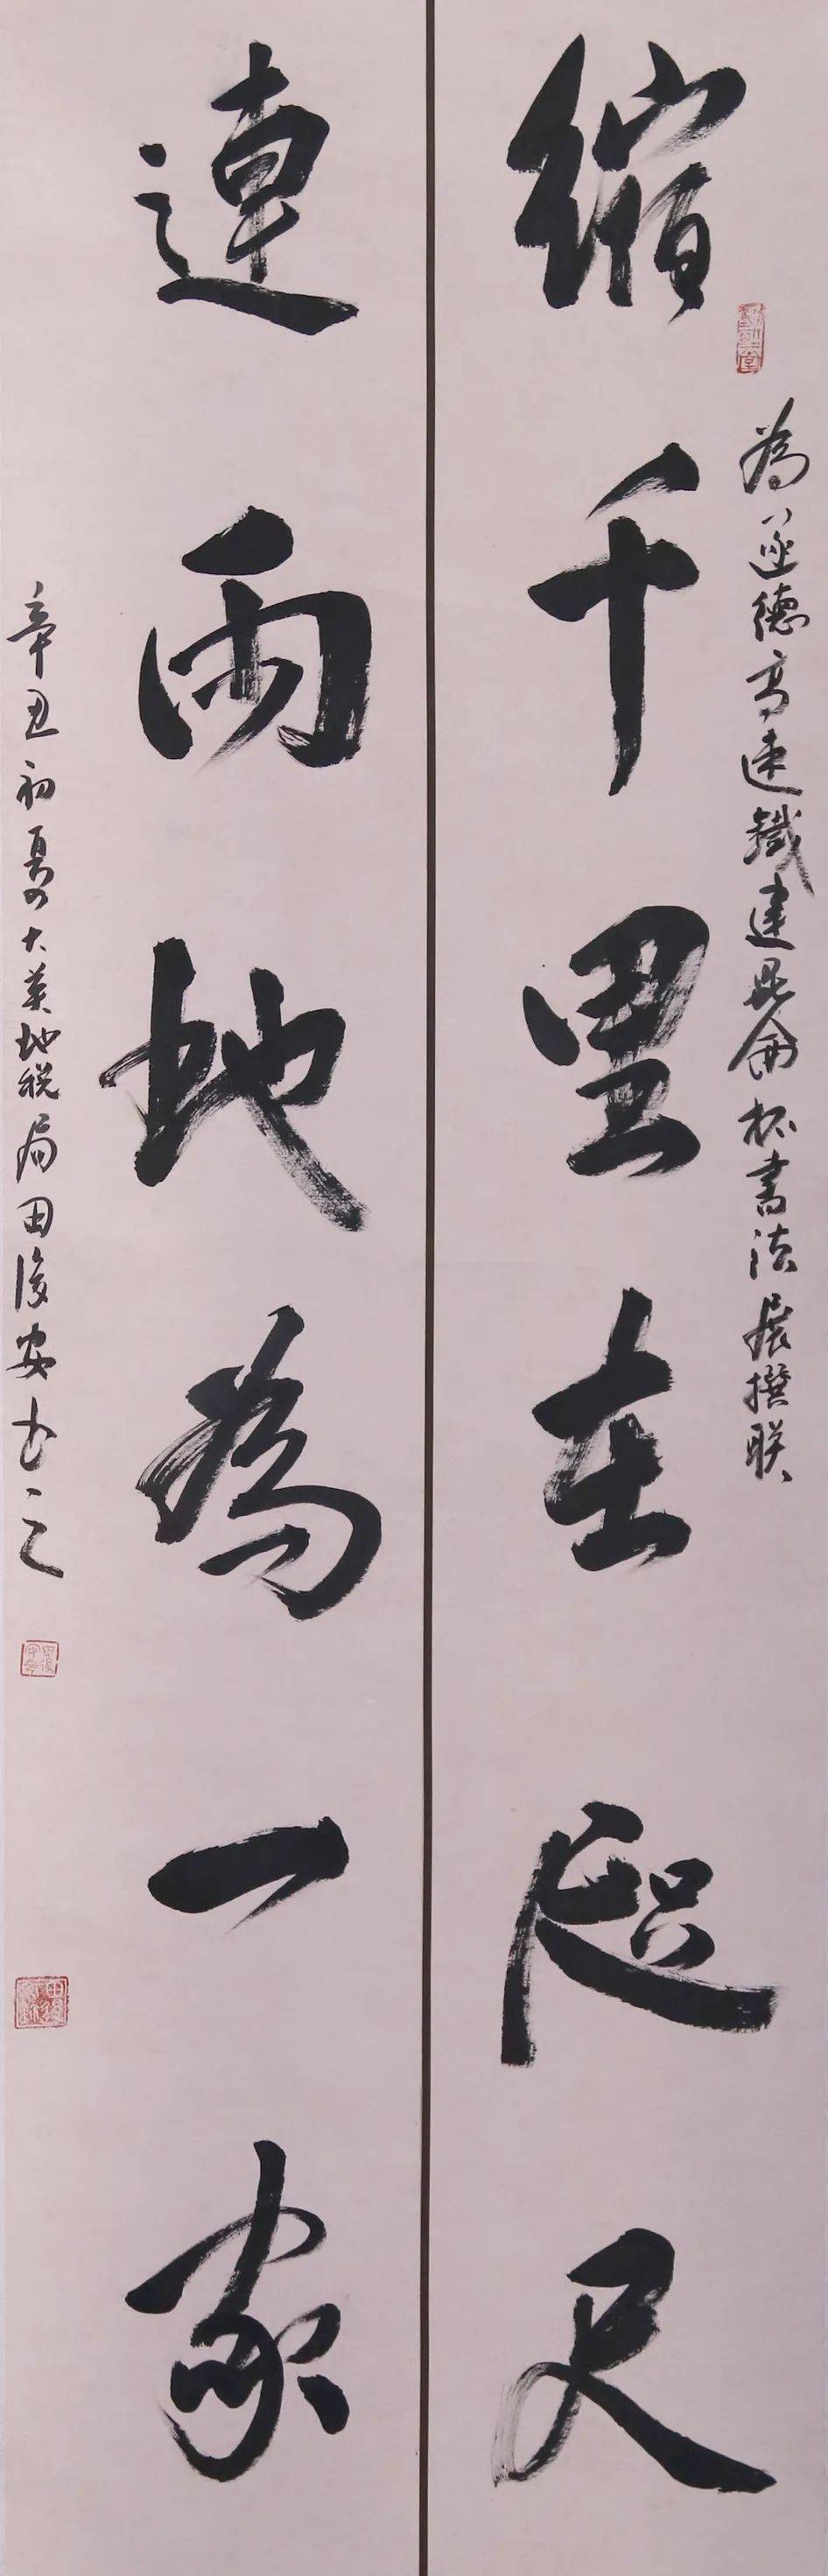 縮千里在咫尺
為遂德高速鐵建昆侖杯書法展撰联
連兩地為一家
辛丑初夏大英地税局田俊安书之